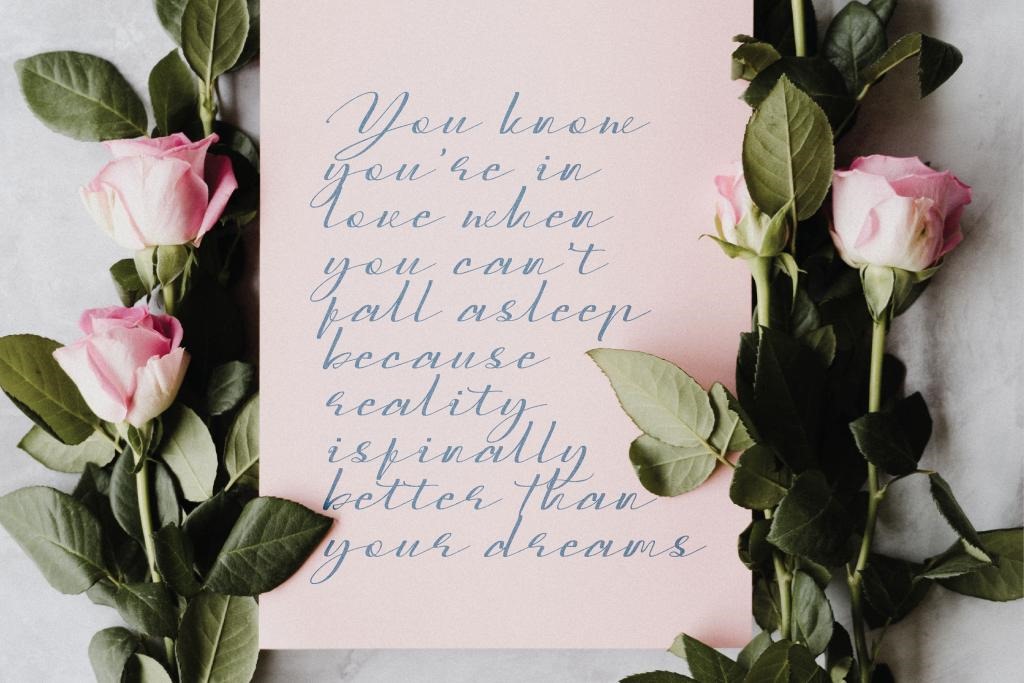 You know
you're in
love when
you can't
fall asleep
because
reality
isfinally
better than
your dreams